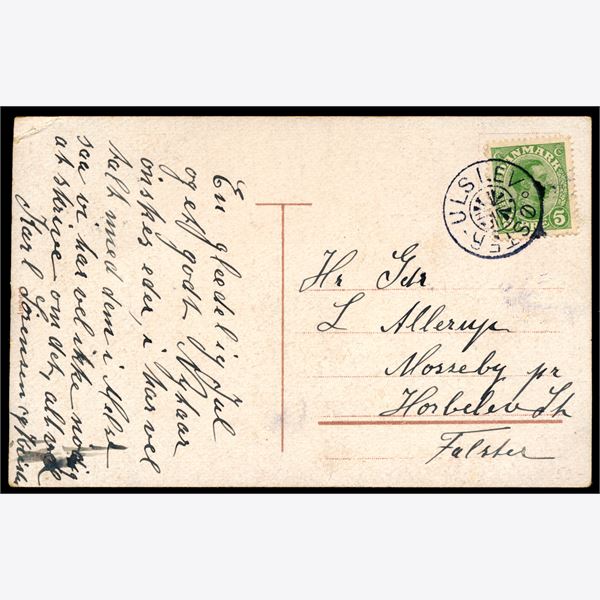 En glædelig Jul
og et godt Nytaar
ønskes eder, i har vel
talt med dem i
saa vi har vel ikke nødig
at skrive om det, alt vel
Karl Sørensen og
DANMARK
5
ØSTER-ULSLEV
Hr Gdr
L Allerup
Mosseby pr
Horbelev St
Falster